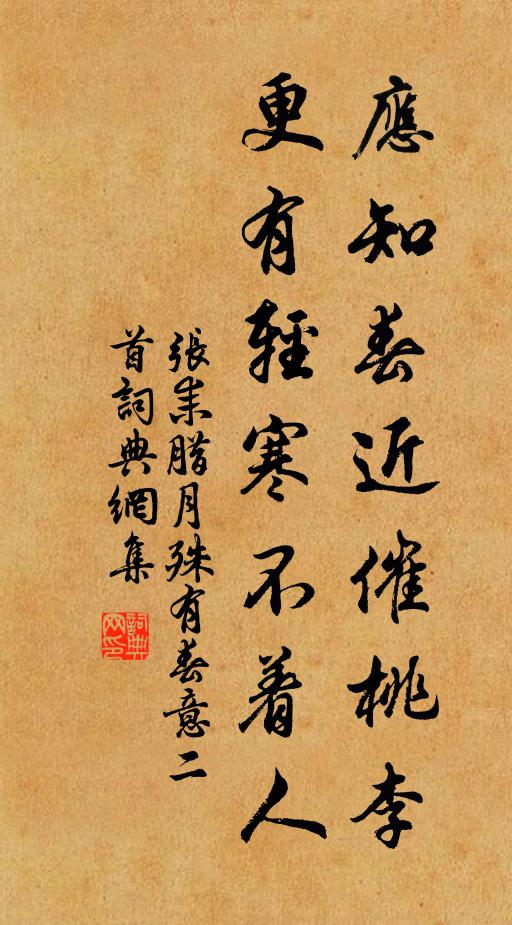 應知春近催桃李
更有輕寒不着人
張耒腊月殊有春意二
首詞典網集
詞典
网印